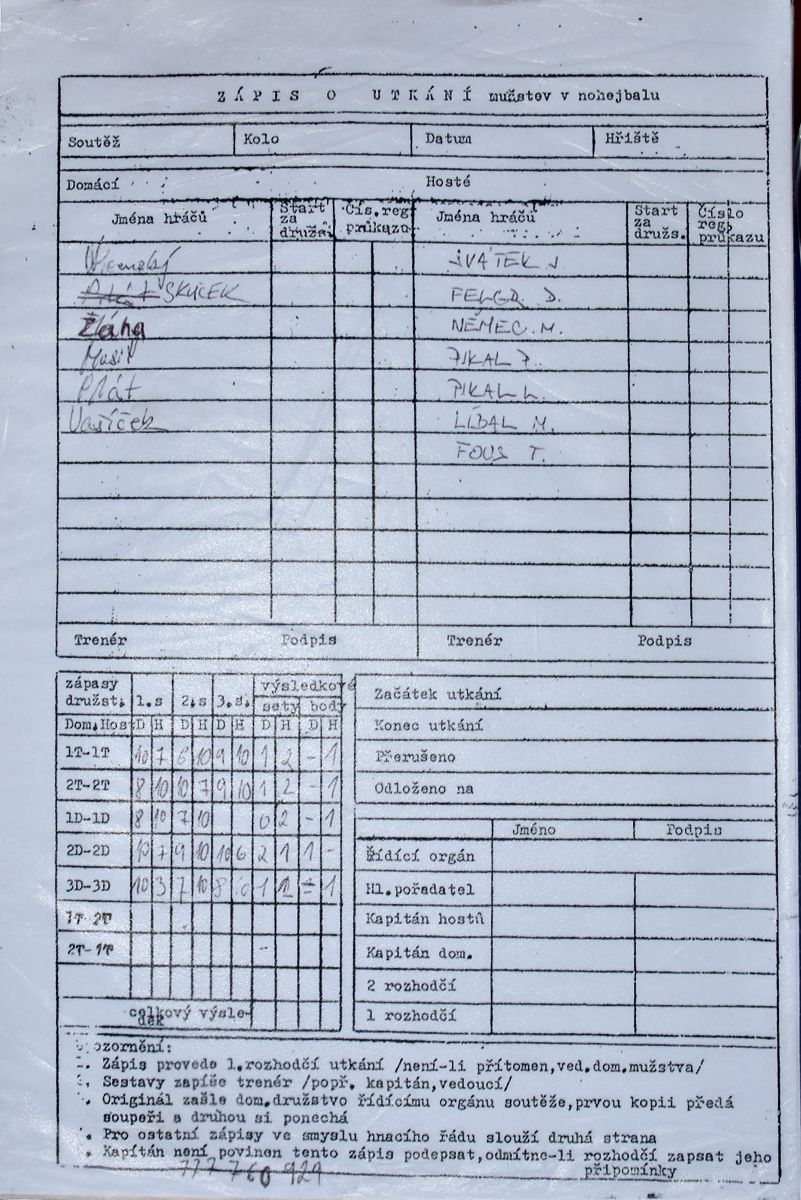 ZÁPIS O UTKÁNÍ mužstev v nohejbalu
Soutěž Kolo Datum Hřiště
Domácí Hosté
Jména hráčů Start za družs. Čís.reg. průkazu Jména hráčů Start za družs. Číslo reg. průkazu
SVÁTEK J
SKUČEK FELGR. D.
Žáha NĚMEC. M.
Masit PIKAL P.
Plát PIKAL L.
Vasíček LÍBAL M.
FOUS T.
Trenér Podpis Trenér Podpis
zápasy družst. 1.s 2.s 3.s. výsledkové sety body
Dom.Host D H D H D H D H D H
1T-1T 10 7 6 10 9 10 1 2 - 1
2T-2T 8 10 10 7 9 10 1 2 - 1
1D-1D 8 10 7 10 0 2 - 1
2D-2D 10 7 9 10 10 6 2 1 1 -
3D-3D 10 3 7 10 8 1 1
1T-2T
2T-1T
celkový výsledek
Začátek utkání
Konec utkání
Přerušeno
Odloženo na
Jméno Podpis
Řídící orgán
Hl.pořadatel
Kapitán hostů
Kapitán dom.
2 rozhodčí
1 rozhodčí
ozornění:
. Zápis provede 1.rozhodčí utkání /není-li přítomen,ved.dom.mužstva/
. Sestavy zapíše trenér /popř. kapitán,vedoucí/
. Originál zašle dom.družstvo řídícímu orgánu soutěže,prvou kopii předá
soupeři a druhou si ponechá
. Pro ostatní zápisy ve smyslu hnacího řádu slouží druhá strana
. Kapitán není povinen tento zápis podepsat,odmítne-li rozhodčí zapsat jeho
připomínky
777 760 929